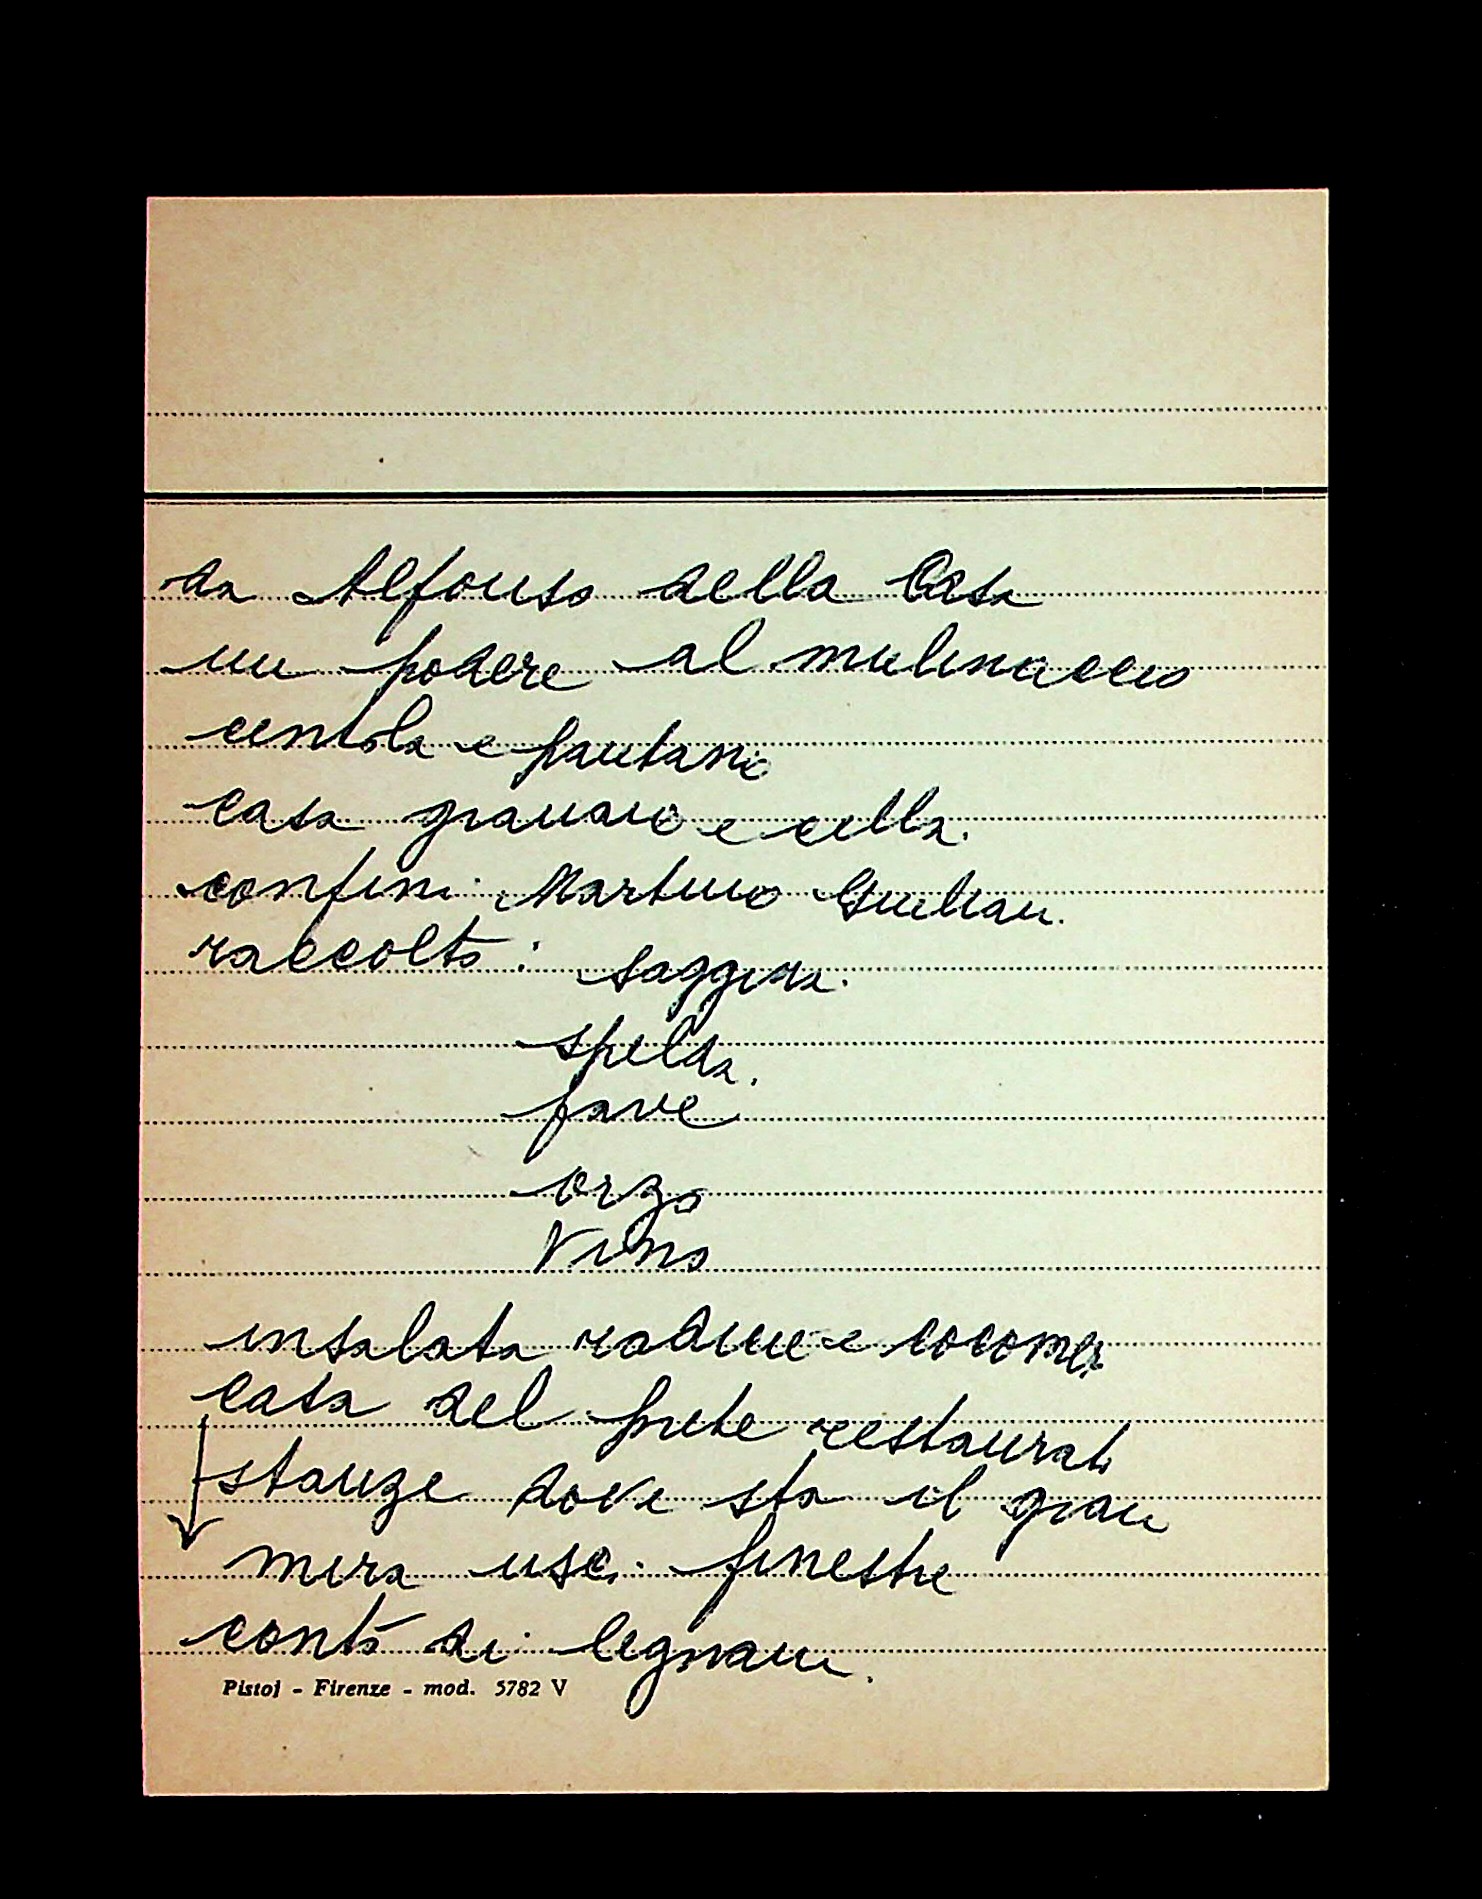 da Alfonso della Casa
un podere al mulinaccio
centola e pantano
casa granaio e cella.
confini Martino Giuliani.
raccolto: saggina.
spelda.
fave
orzo
Vino
insalata radici e cocomeri
casa del prete restaurati
stanze dove sta il gran
mira usci finestre
conto di legnami.
Pistoj - Firenze - mod. 5782 V